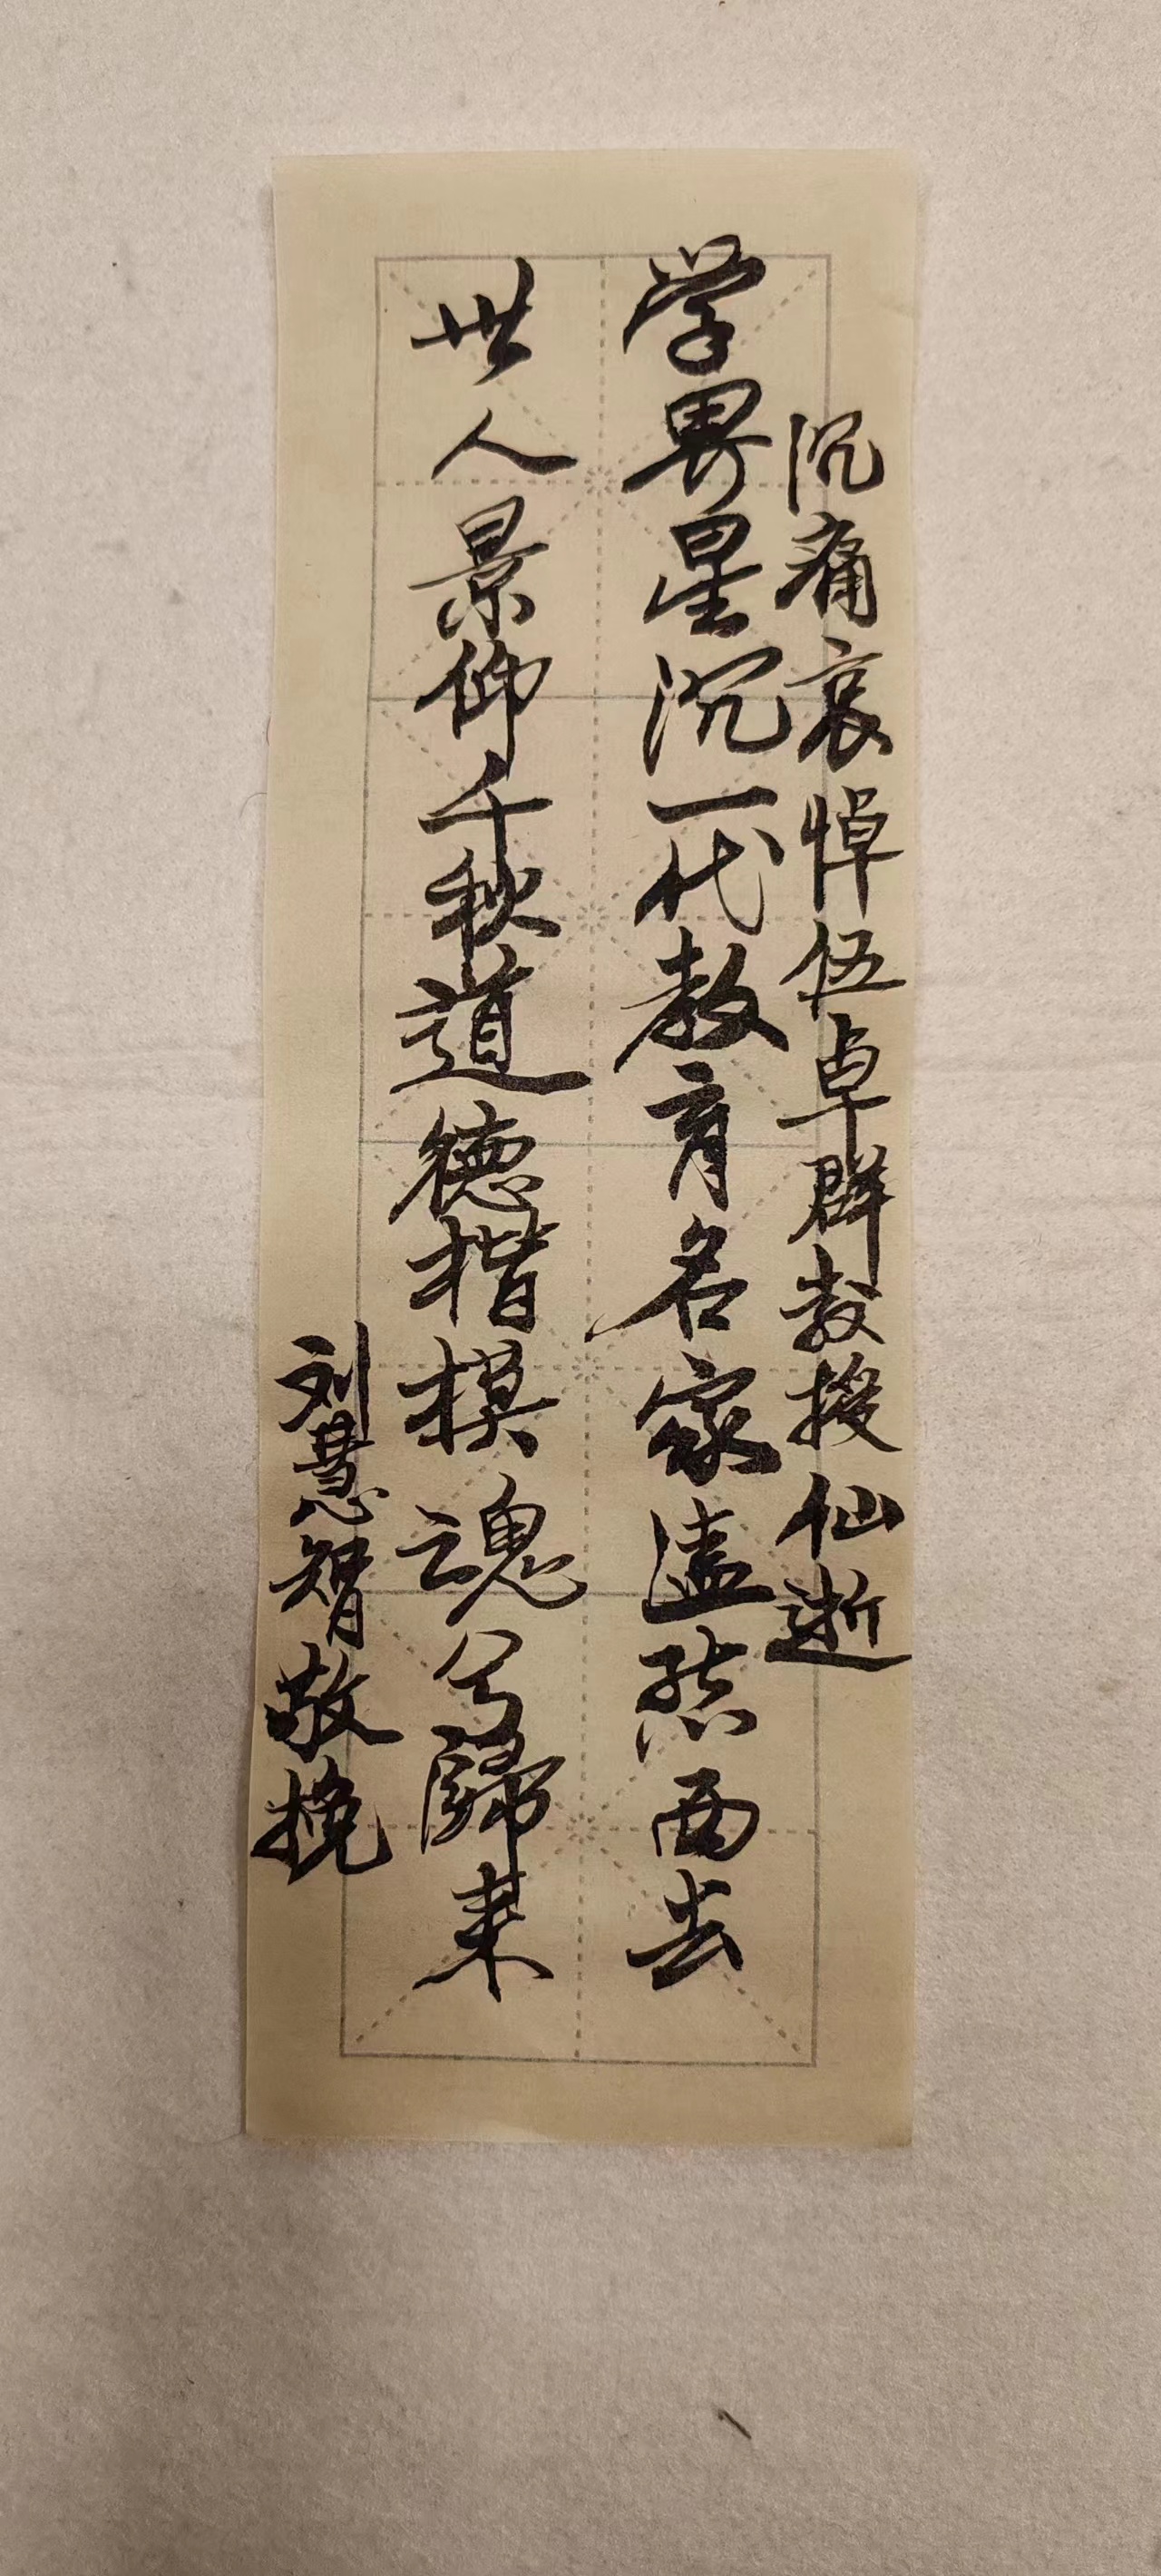 沉痛哀悼伍卓群教授仙逝
学界星沉一代教育名家溘然西去
世人景仰千秋道德楷模魂兮歸来
刘慧智敬挽